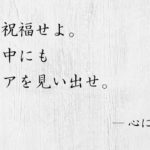 祝福せよ。
中にも
アを見い出せ。
— 心に